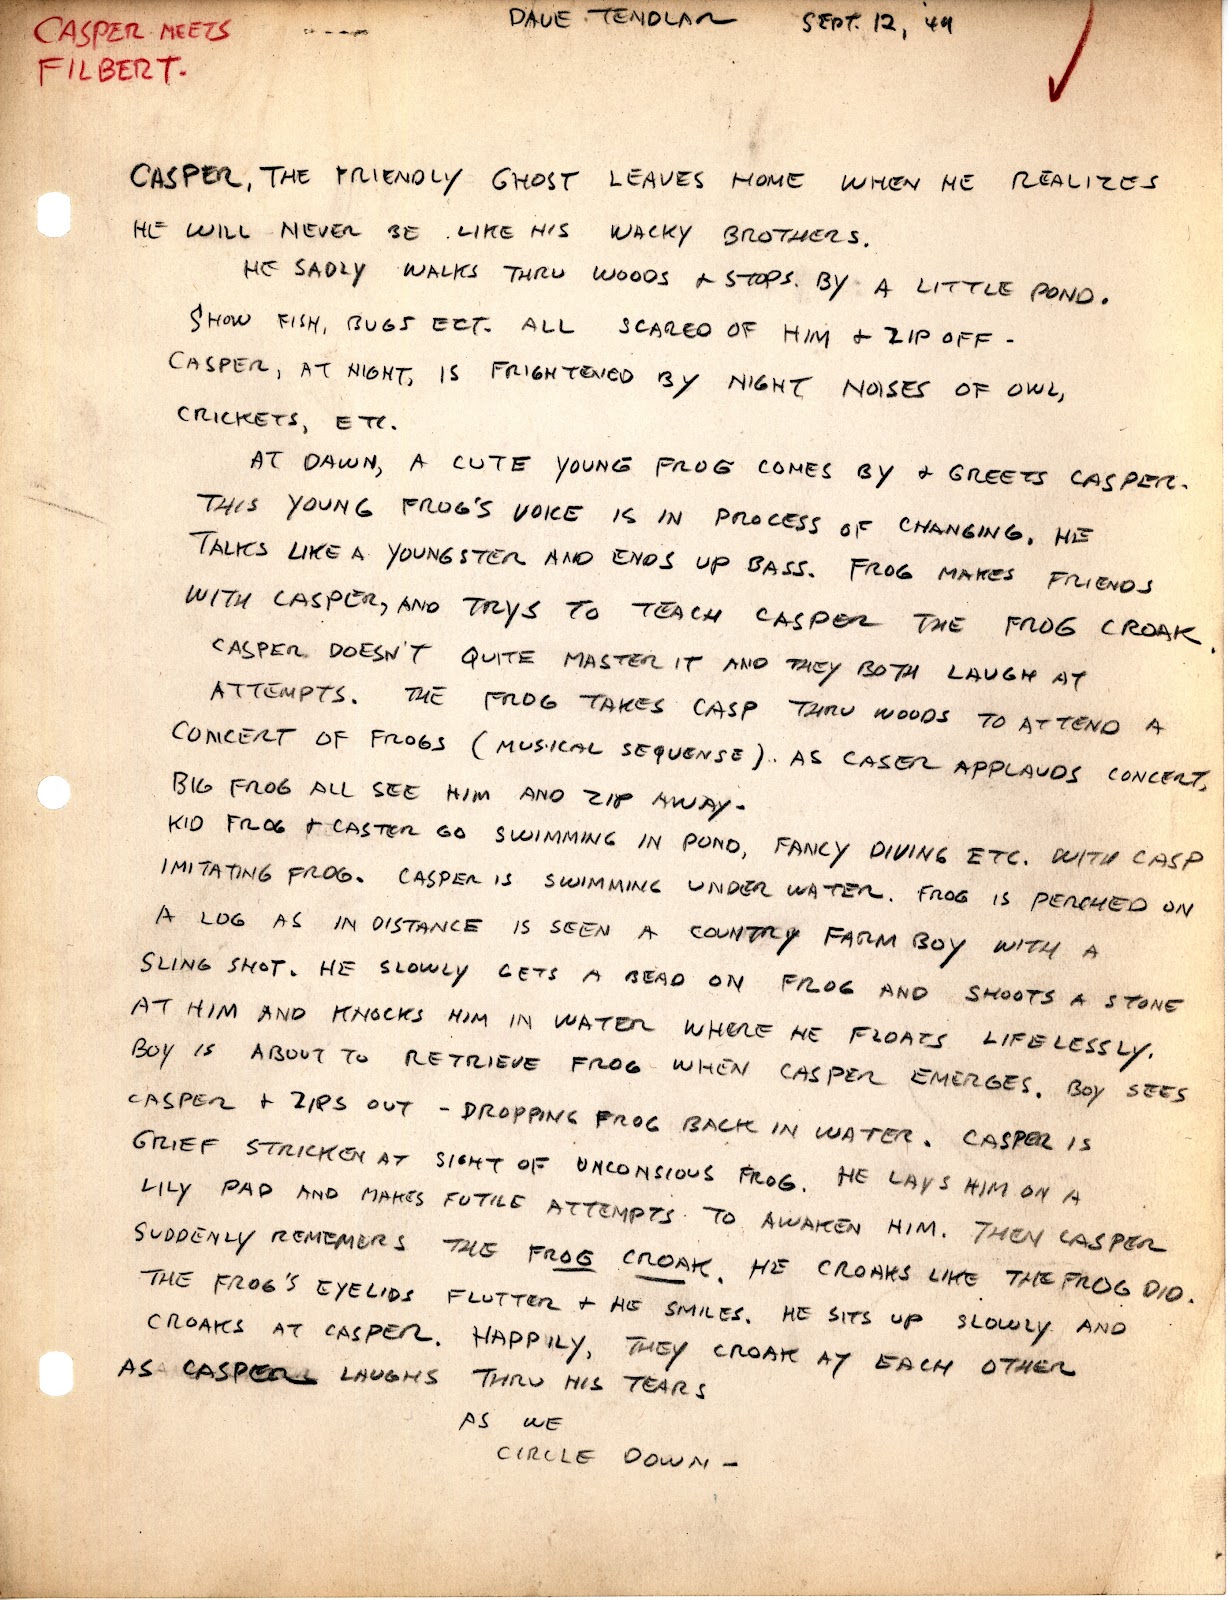 CASPER MEETS
FILBERT.
DAVE TENDLAR SEPT. 12, '49
CASPER, THE FRIENDLY GHOST LEAVES HOME WHEN HE REALIZES
HE WILL NEVER BE LIKE HIS WACKY BROTHERS.
HE SADLY WALKS THRU WOODS & STOPS. BY A LITTLE POND.
SHOW FISH, BUGS ECT. ALL SCARED OF HIM & ZIP OFF -
CASPER, AT NIGHT, IS FRIGHTENED BY NIGHT NOISES OF OWL,
CRICKETS, ETC.
AT DAWN, A CUTE YOUNG FROG COMES BY & GREETS CASPER.
THIS YOUNG FROG'S VOICE IS IN PROCESS OF CHANGING. HE
TALKS LIKE A YOUNGSTER AND ENDS UP BASS. FROG MAKES FRIENDS
WITH CASPER, AND TRYS TO TEACH CASPER THE FROG CROAK.
CASPER DOESN'T QUITE MASTER IT AND THEY BOTH LAUGH AT
ATTEMPTS. THE FROG TAKES CASP THRU WOODS TO ATTEND A
CONCERT OF FROGS (MUSICAL SEQUENSE). AS CASER APPLAUDS CONCERT,
BIG FROG ALL SEE HIM AND ZIP AWAY-
KID FROG & CASTER GO SWIMMING IN POND, FANCY DIVING ETC. WITH CASP
IMITATING FROG. CASPER IS SWIMMING UNDER WATER. FROG IS PERCHED ON
A LOG AS IN DISTANCE IS SEEN A COUNTRY FARM BOY WITH A
SLING SHOT. HE SLOWLY GETS A BEAD ON FROG AND SHOOTS A STONE
AT HIM AND KNOCKS HIM IN WATER WHERE HE FLOATS LIFELESSLY.
BOY IS ABOUT TO RETRIEVE FROG WHEN CASPER EMERGES. BOY SEES
CASPER & ZIPS OUT - DROPPING FROG BACK IN WATER. CASPER IS
GRIEF STRICKEN AT SIGHT OF UNCONSIOUS FROG. HE LAYS HIM ON A
LILY PAD AND MAKES FUTILE ATTEMPTS TO AWAKEN HIM. THEN CASPER
SUDDENLY REMEMERS THE FROG CROAK. HE CROAKS LIKE THE FROG DID.
THE FROG'S EYELIDS FLUTTER & HE SMILES. HE SITS UP SLOWLY AND
CROAKS AT CASPER. HAPPILY, THEY CROAK AT EACH OTHER
AS CASPER LAUGHS THRU HIS TEARS
AS WE
CIRCLE DOWN -